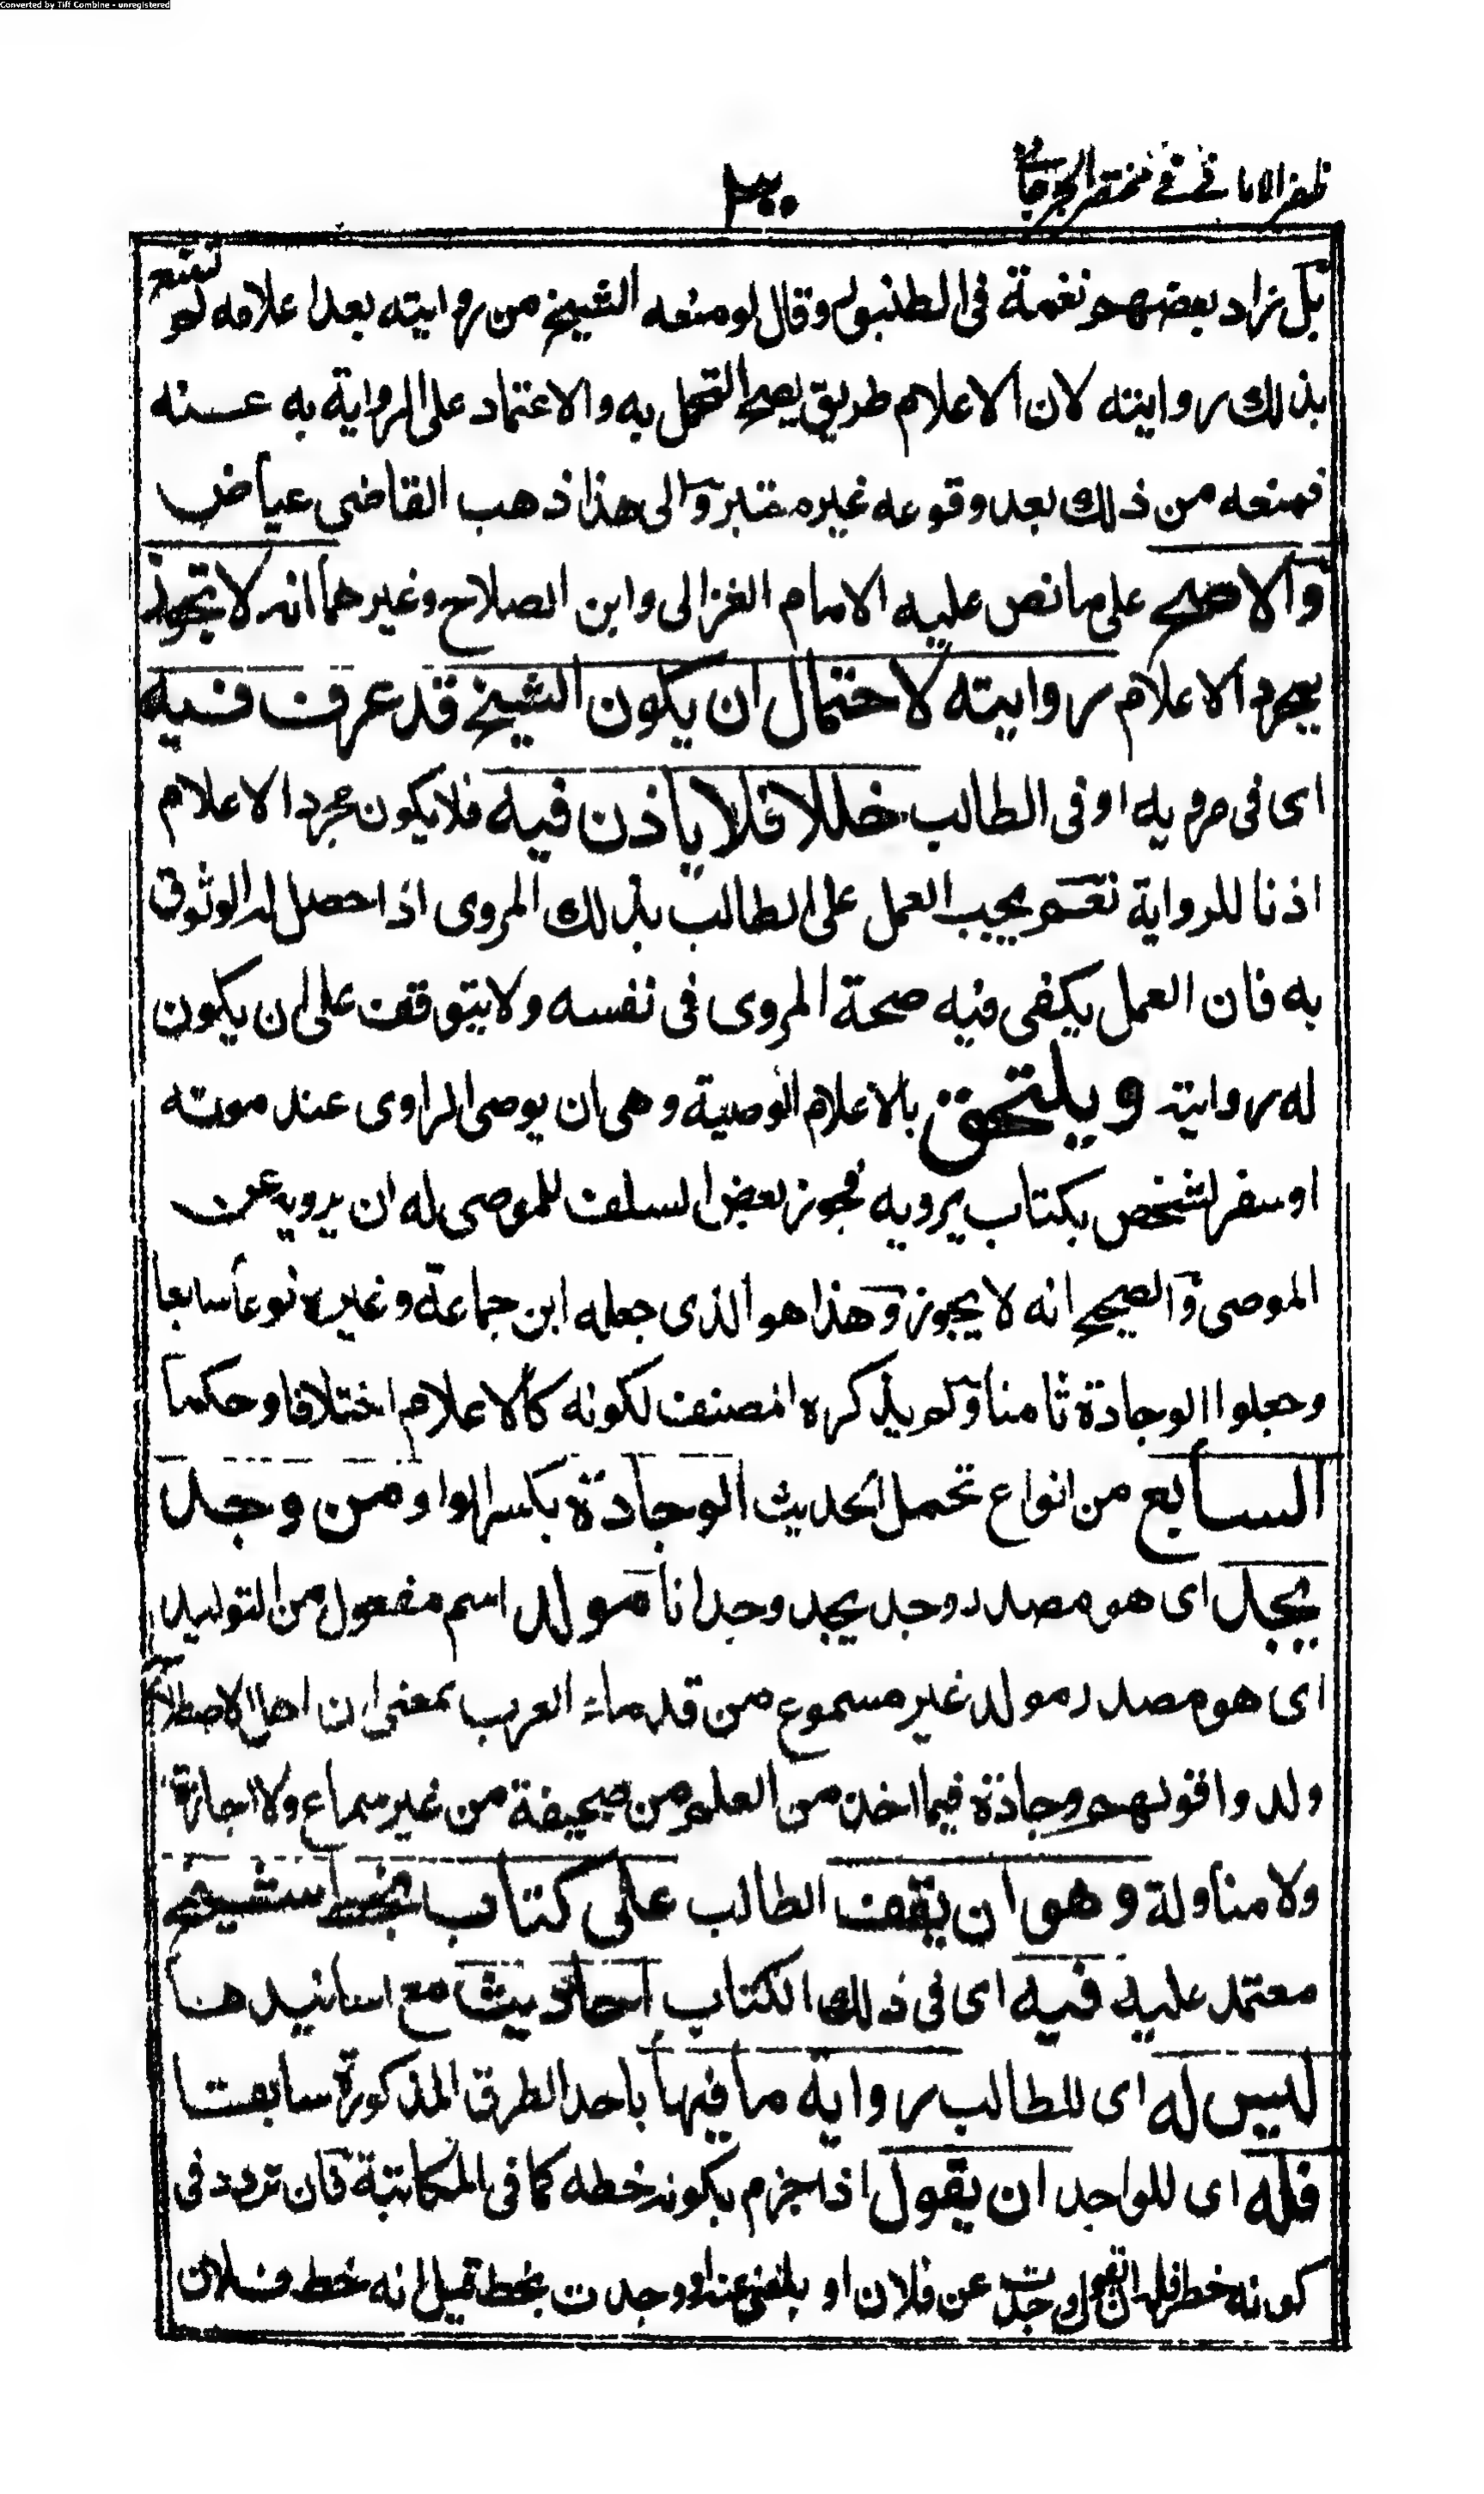 Converted by Tiff Combine - unregistered
ظفر الامانى فى مختصر الجرجانى
٣٠٠
بل زاد بعضهم نغمة فى الطنبور وقال لو منعه الشيخ من روايته بعد اعلامه لم تمتنع
بذلك روايته لان الاعلام طريق يصح التحمل به والاعتماد على الرواية به عنه
فمنعه من ذلك بعد وقوعه غير معتبر والى هذا ذهب القاضى عياض
والاصح على ما نص عليه الامام الغزالى وابن الصلاح وغيرهما انه لا تجوز
بمجرد الاعلام روايته لاحتمال ان يكون الشيخ قد عرف فيه
اى فى مرويه او فى الطالب خللا فلا ياذن فيه فلا يكون مجرد الاعلام
اذنا للرواية نعم يجب العمل على الطالب بذلك المروى اذا حصل له الوثوق
به فان العمل يكفى فيه صحة المروى فى نفسه ولا يتوقف على ان يكون
له روايته ويلتحق بالاعلام الوصية وهى ان يوصى الراوى عند موته
او سفر لشخص بكتاب يرويه فجوز بعض السلف للموصى له ان يرويه عن
الموصى والصحيح انه لا يجوز وهذا هو الذى جعله ابن جماعة وغيره نوعا سابعا
وجعلوا الوجادة ثامنا ولم يذكره المصنف لكونه كالاعلام اختلافا وحكما
السابع من انواع تحمل الحديث الوجادة بكسر الواو من وجد
يجد اى هو مصدر وجد يجد وجدانا مولد اسم مفعول من التوليد
اى هو مصدر مولد غير مسموع من قدماء العرب بمعنى ان اهل الاصطلاح
ولدوا قولهم وجادة فيما اخذ من العلم من صحيفة من غير سماع ولا اجازة
ولا مناولة وهو ان يقف الطالب على كتاب بخط شيخ
معتمد عليه فيه اى فى ذلك الكتاب احاديث مع اسانيدها
ليس له اى للطالب رواية ما فيها باحد الطرق المذكورة سابقا
فله اى للواجد ان يقول اذا جزم بكونه خطه كما فى المكاتبة فان تردد فى
كونه خطه فله ان يقول وجدت عن فلان او بلغنى عنه او وجدت بخط قيل انه خط فلان